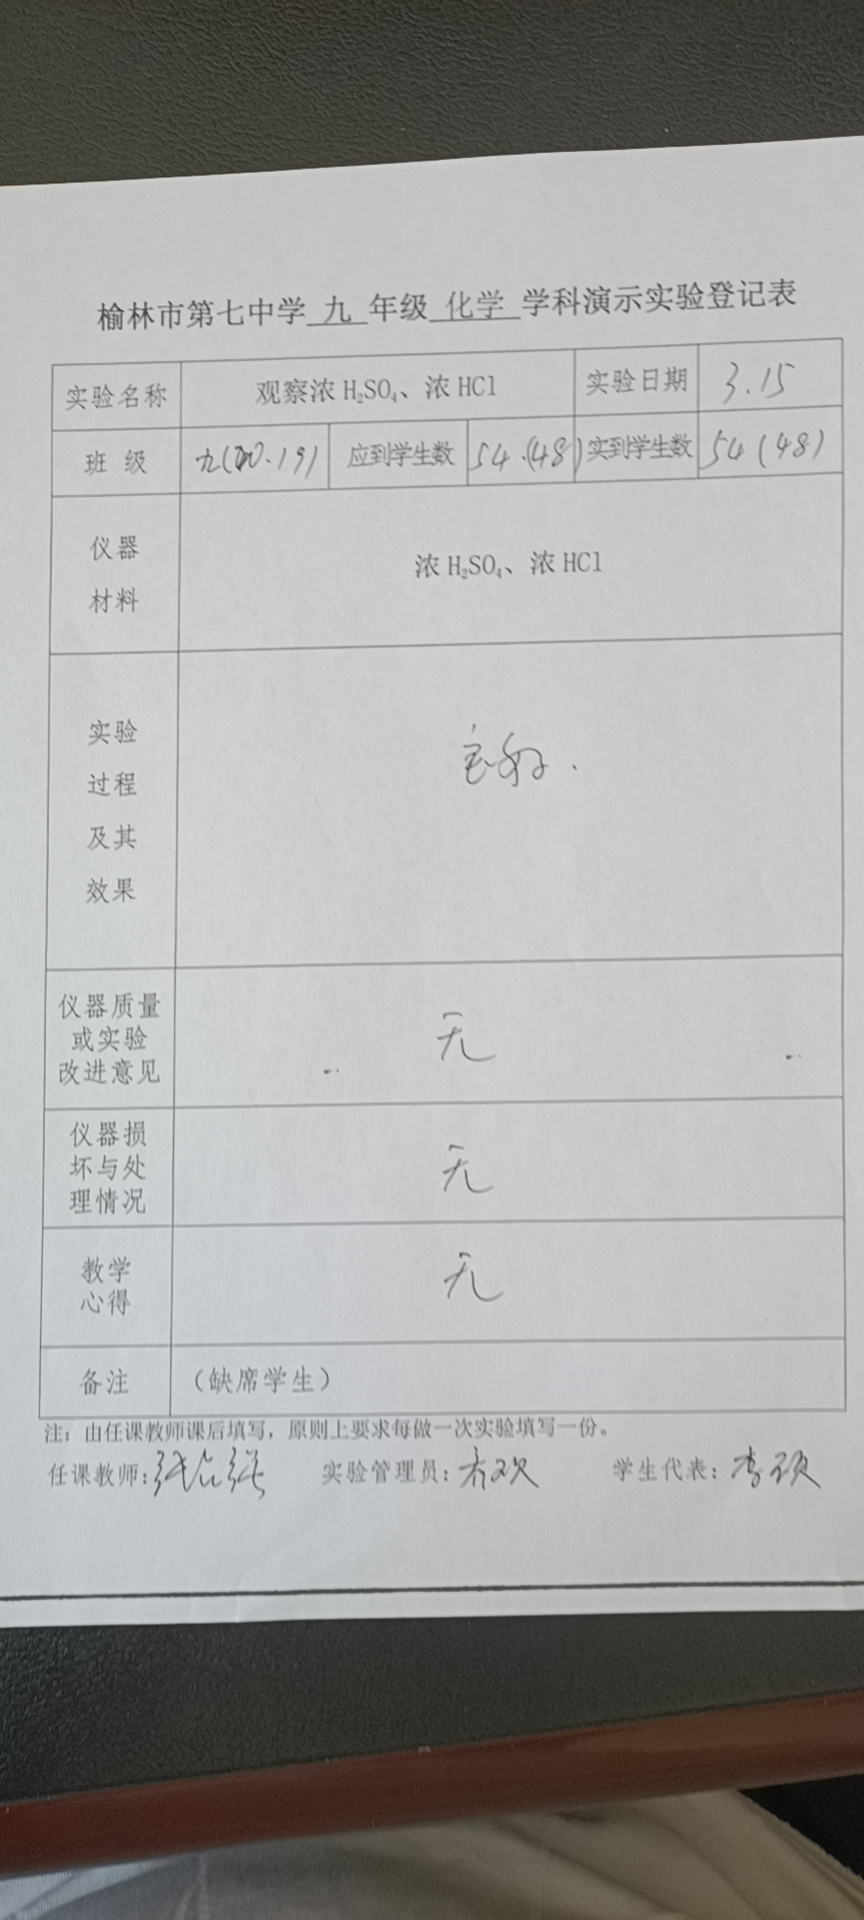 榆林市第七中学 九 年级 化学 学科演示实验登记表
实验名称 观察浓 H₂SO₄、浓 HCl 实验日期 3.15
班级 九( .19) 应到学生数 54.(48) 实到学生数 54(48)
仪器
材料
浓 H₂SO₄、浓 HCl
实验
过程
及其
效果
良好.
仪器质量
或实验
改进意见
无
仪器损
坏与处
理情况
无
教学
心得
无
备注 (缺席学生)
注：由任课教师课后填写，原则上要求每做一次实验填写一份。
任课教师： 实验管理员： 学生代表：